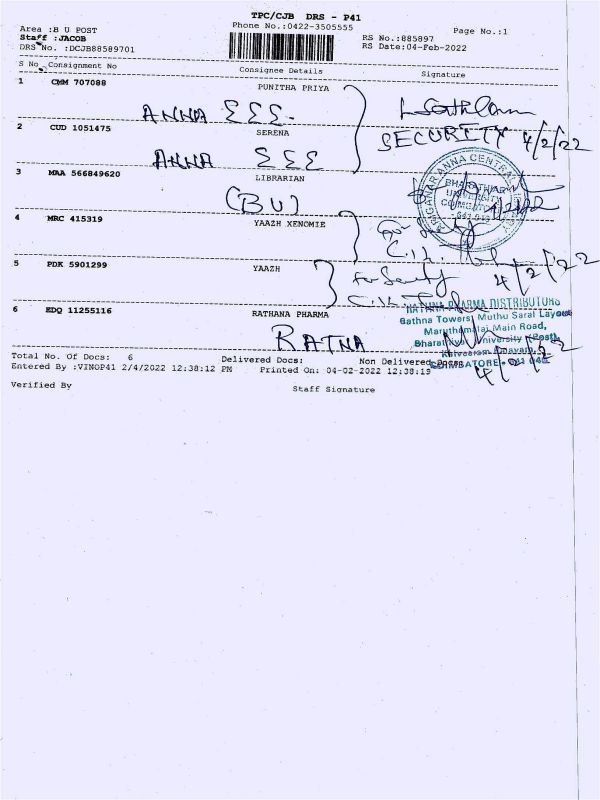 TPC/CJB DRS - P41
Area :B U POST Phone No.:0422-3505555 Page No.:1
Staff :JACOB RS No.:885897
DRS No. :DCJB88589701 RS Date:04-Feb-2022
S No Consignment No Consignee Details Signature
1 CMM 707088 PUNITHA PRIYA
ANNA ΣΣΣ-
SECURITY 4/2/22
2 CUD 1051475 SERENA
ANNA ΣΣΣ
3 MAA 566849620 LIBRARIAN
(BU)
BHARATHIAR
UNIVERSITY
4 MRC 415319 YAAZH XENOMIE
5 PDK 5901299 YAAZH
4/2/22
6 EDQ 11255116 RATHANA PHARMA
RATNA
RATHNA PHARMA DISTRIBUTORS
Rathna Towers, Muthu Saral Layout
Maruthamalai Main Road,
University (Post),
COIMBATORE - 641 046
4/2/22
Total No. Of Docs: 6 Delivered Docs: Non Delivered Docs
Entered By :VINOP41 2/4/2022 12:38:12 PM Printed On: 04-02-2022 12:38:19
Verified By Staff Signature